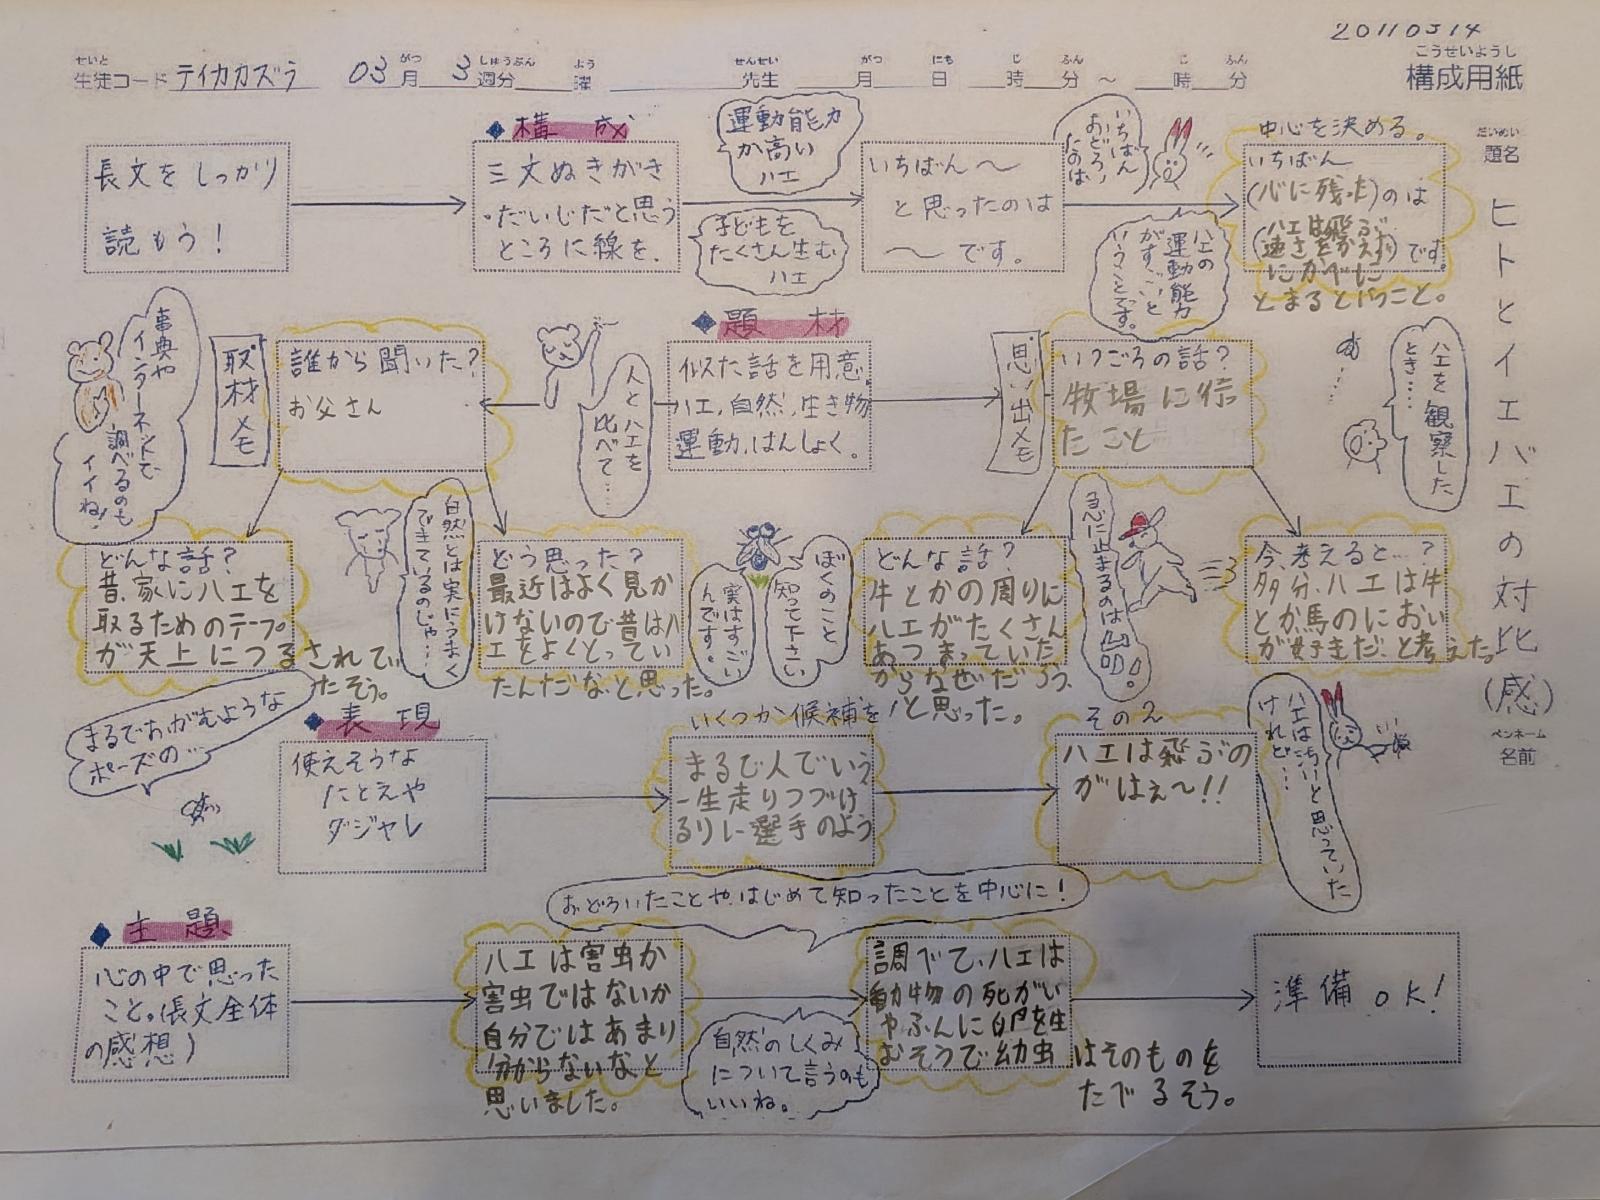 20110314
こうせいようし
構成用紙
せいと がつ しゅうぶん よう せんせい がつ にち じ ふん じ ふん
生徒コード テイカカズラ 03月 3週分 曜 先生 月 日 時 分 ～ 時 分
だいめい
題名
ヒトとイエバエの対比(感)
ペンネーム
名前
長文をしっかり
読もう！
◆構 成
三文ぬきがき
・だいじだと思う
ところに線を.
運動能力
が高い
ハエ
子どもを
たくさん生む
ハエ
いちばん～
と思ったのは
～です。
いちばん
おどろい
たのは
ハエの
運動能力
がすごいと
いうことです。
中心を決める。
いちばん
(心に残った)のは
(ハエは飛ぶ
速さをかえずに)です。
にかべに
とまるということ。
◆題 材
似た話を用意。
ハエ、自然、生き物
運動、はんしょく。
人とハエを
比べて……
取材メモ
誰から聞いた？
お父さん
事典や
インターネットで
調べるのも
イイね！
思い出メモ
いつごろの話？
牧場に行っ
たこと
ハエを観察した
とき…
どんな話？
昔、家にハエを
取るためのテープ。
が天上につるされて
たそう。
自然とは実にうまく
できているのじゃ…
どう思った？
最近はよく見か
けないので昔はハ
エをよくとってい
たんだな、と思った。
ぼくのこと
知って下さい
実はすごい
んです。
どんな話？
牛とかの周りに
ハエがたくさん
あつまっていた
からなぜだろう、
と思った。
急に止まるのは
今、考えると…？
多分、ハエは牛
とか馬のにおい
が好きだ、と考えた。
まるでおがむような
ポーズの…
◆表 現
使えそうな
たとえや
ダジャレ
いくつか候補を！
まるで人でいう
一生走りつづけ
るリレー選手のよう
その2
ハエは飛ぶの
がはぇ～！！
ハエは汚いーと思っていた
けれど…
おどろいたことや、はじめて知ったことを中心に！
◆主 題
心の中で思った
こと。(長文全体
の感想)
ハエは害虫か
害虫ではないか
自分ではあまり
分からないなと
思いました。
自然のしくみ
について言うのも
いいね。
調べて、ハエは
動物の死がい
やふんに卵を生
むそうで幼虫
はそのものを
たべるそう。
準備OK！